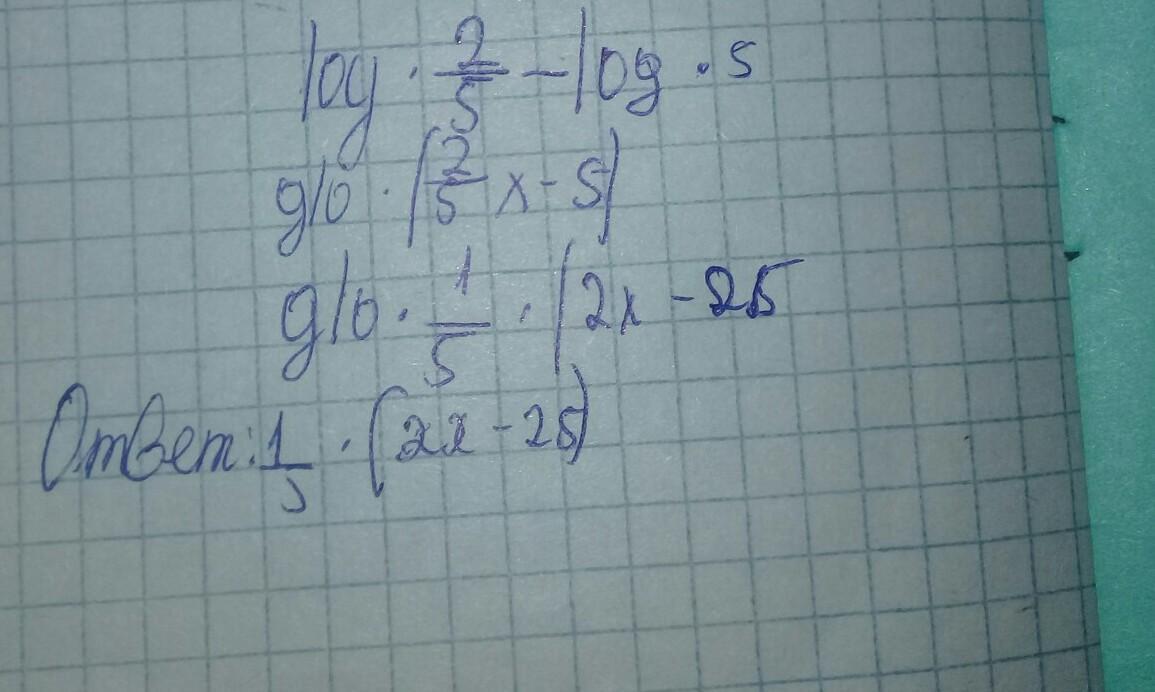 log · 2/5 - log · 5
glo · (2/5 x - 5)
glo · 1/5 · (2x - 25
Ответ: 1/5 · (2x - 25)